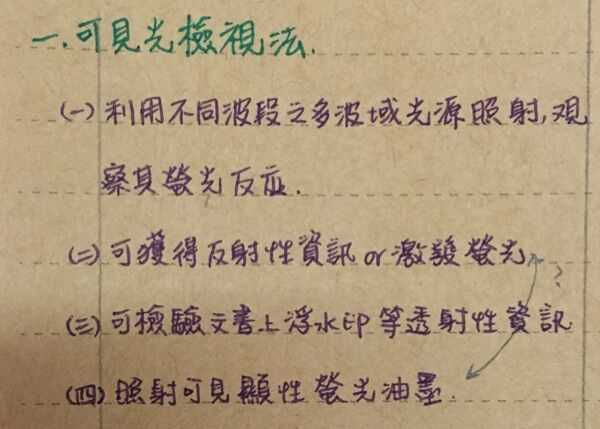 一.可見光檢視法.
(一)利用不同波段之多波域光源照射,观
察其螢光反应.
(二)可獲得反射性資訊or激發螢光.
?
(三)可檢驗文書上浮水印等透射性資訊
(四)照射可見顯性螢光油墨.